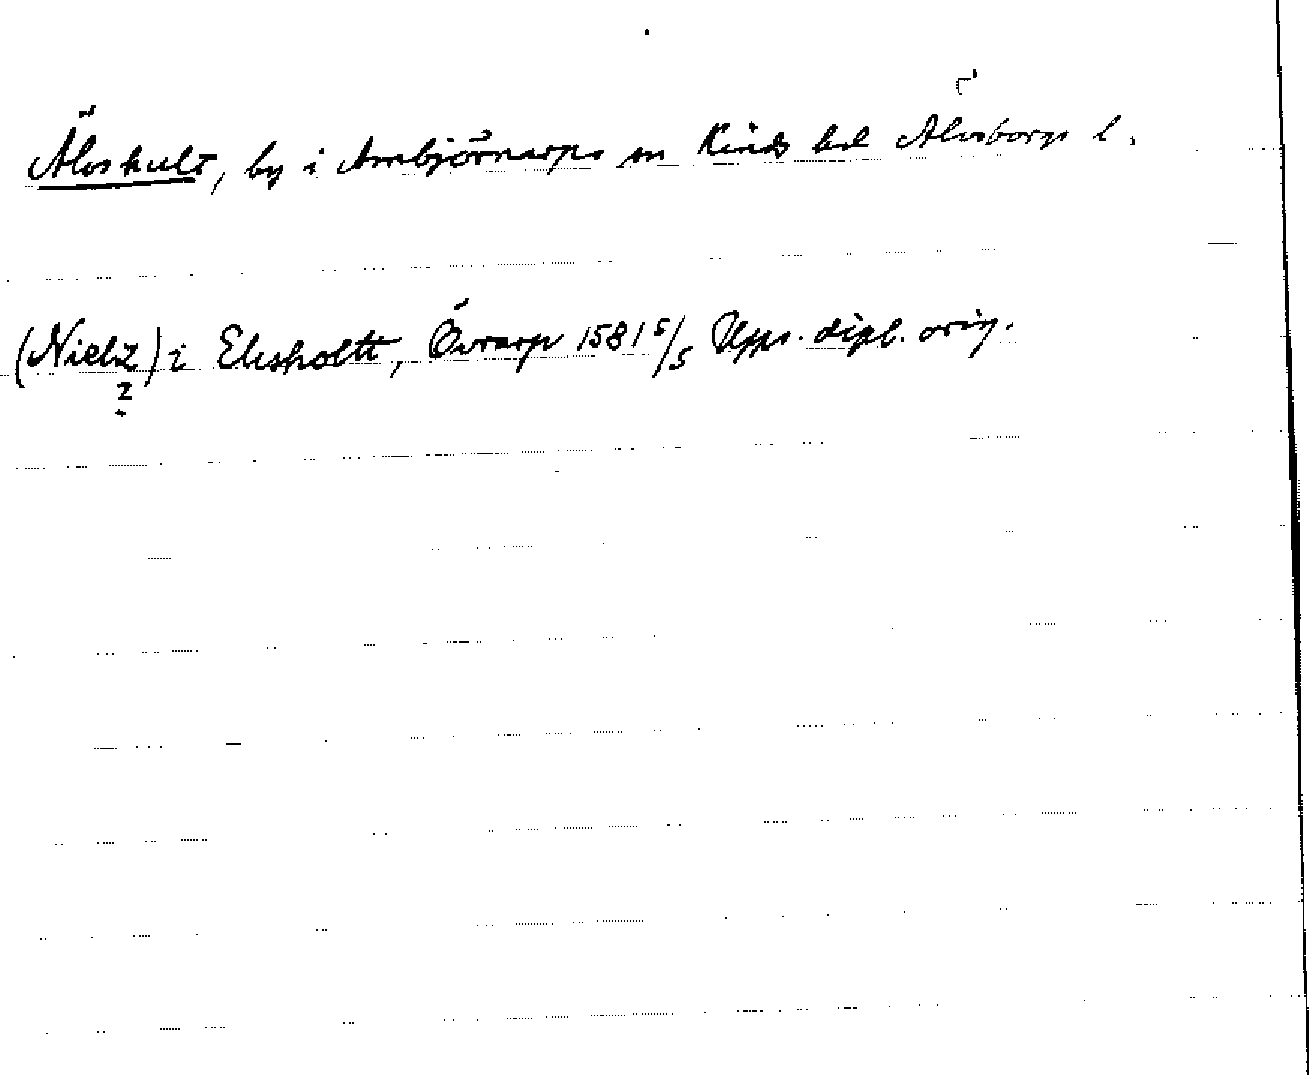 Älvshult, by i Ambjörnarps sn Kinds hd Älvsborgs l.
(Nielz) i Elsholtt, Övrarp 1581 5/5 Upps. dipl. orig.
z